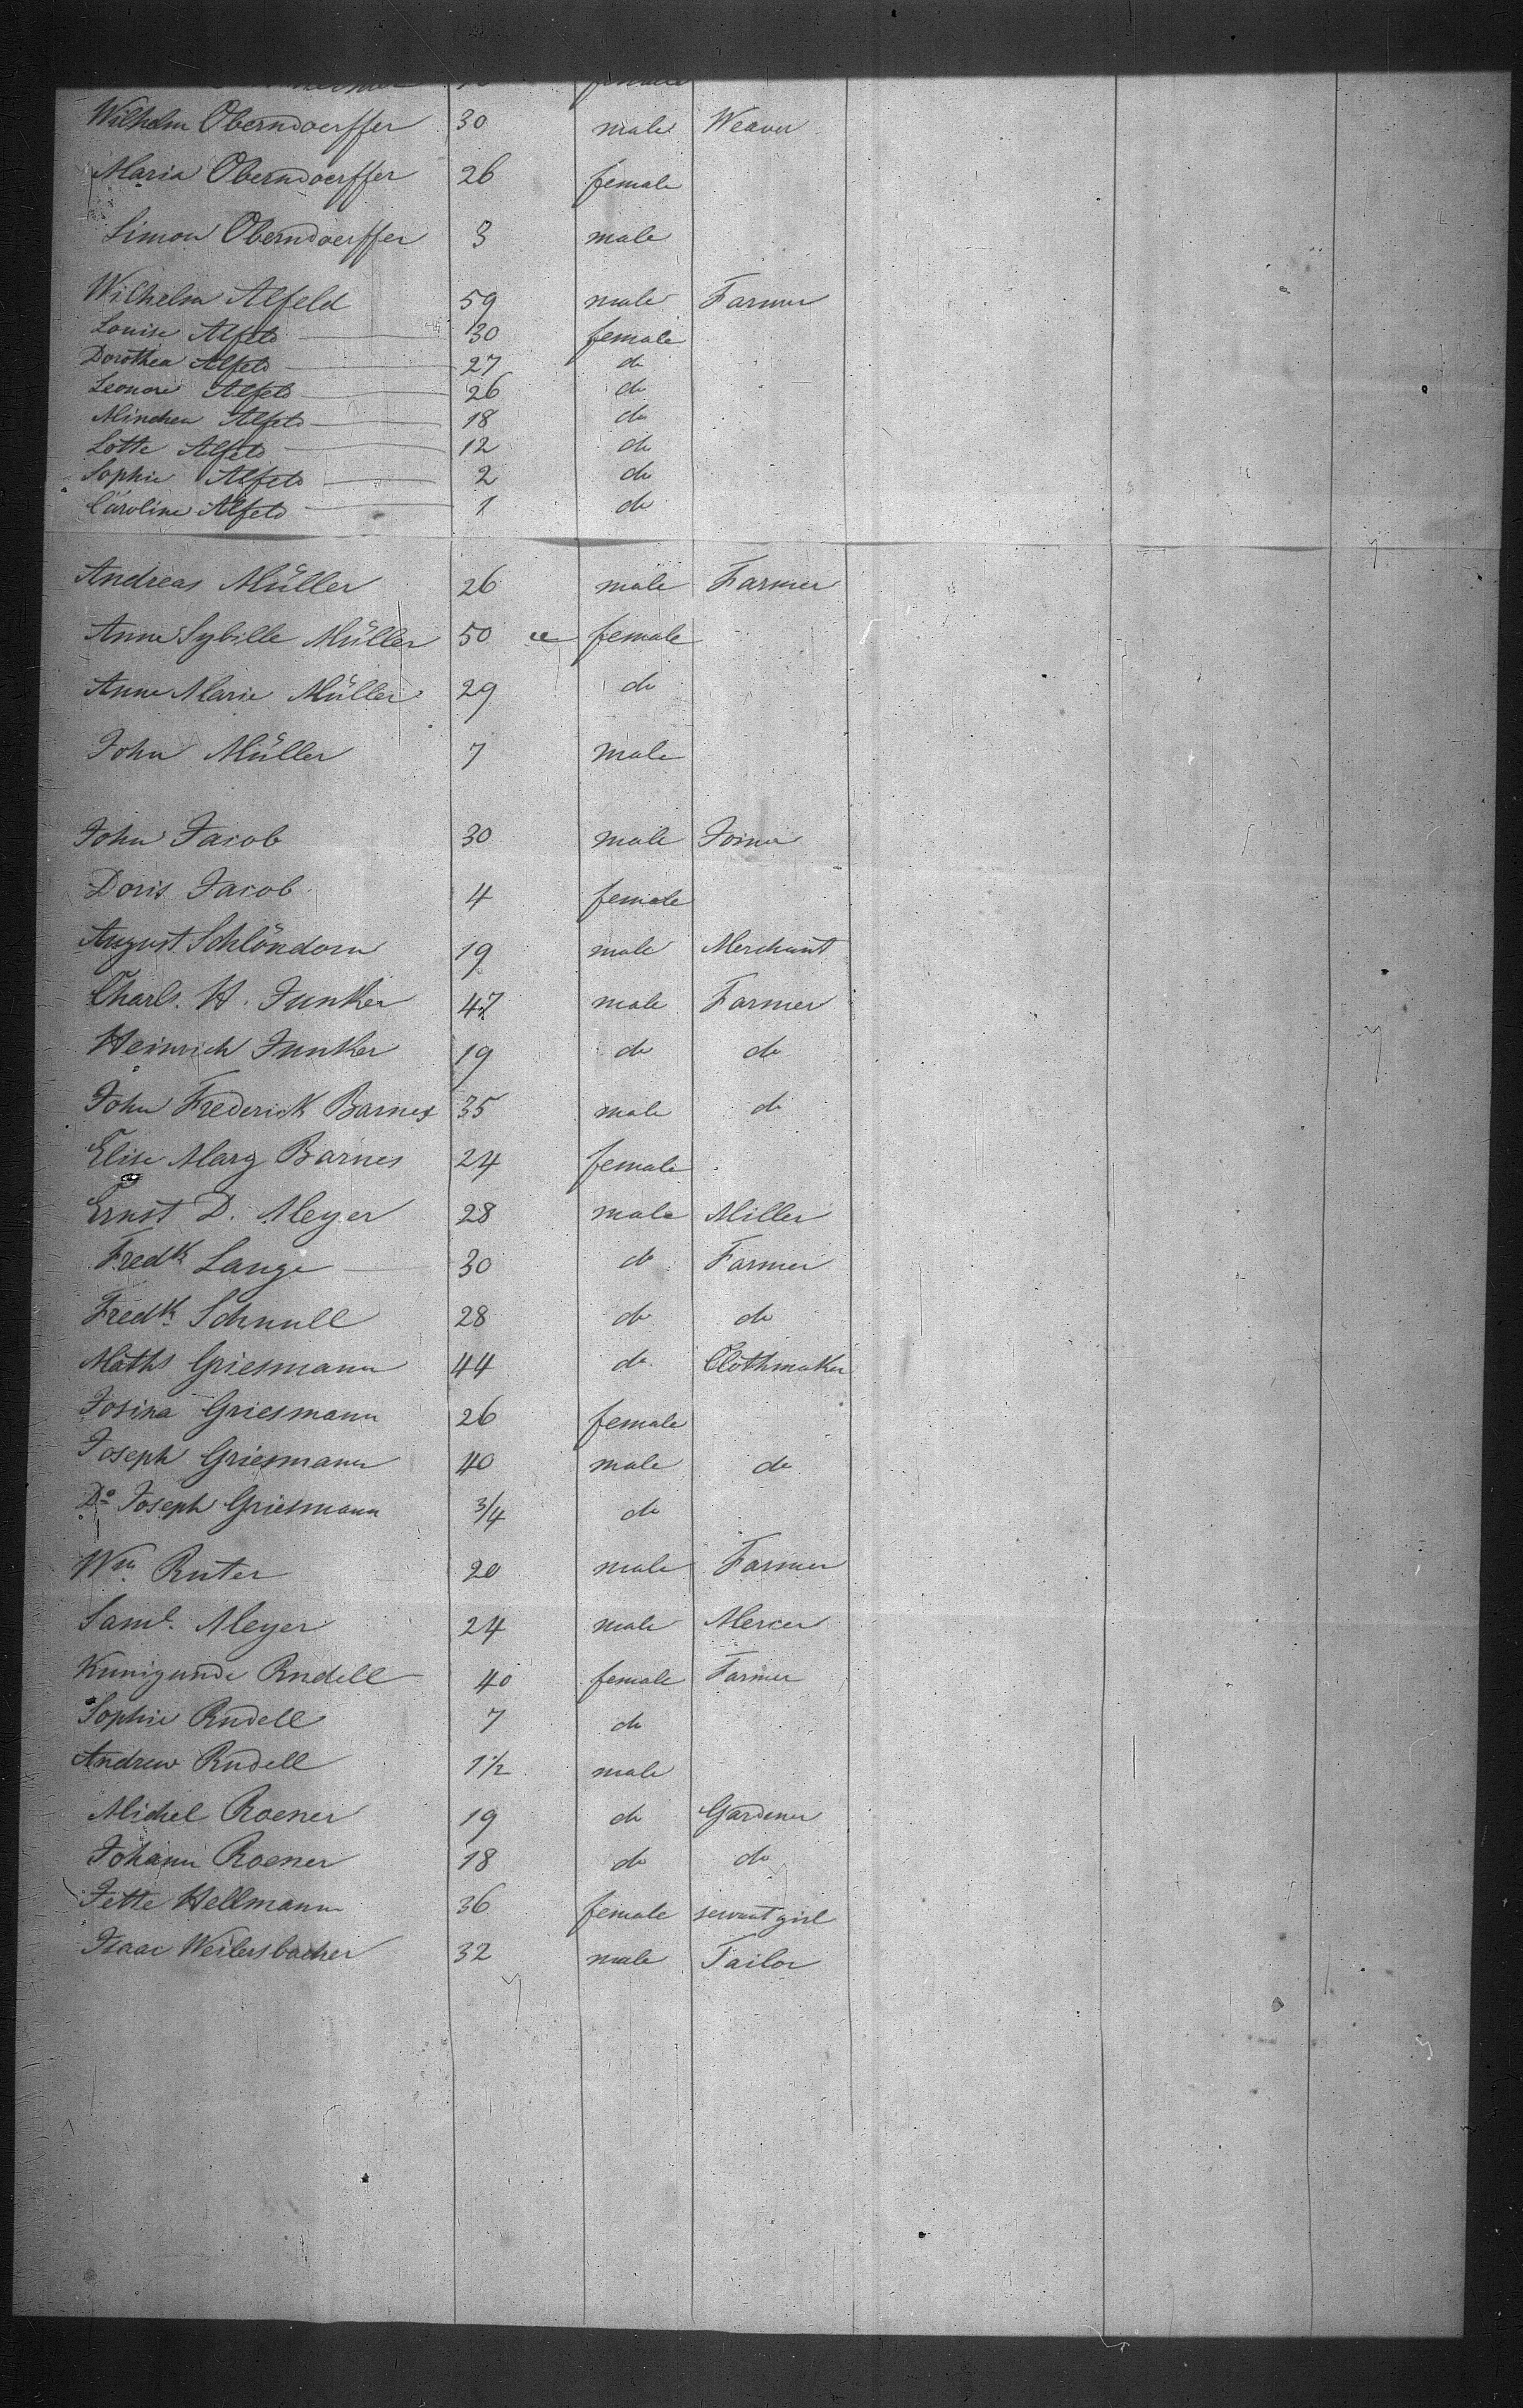 female
Wilhelm Oberndoerffer 30 male Weaver
Maria Oberndoerffer 26 female
Simon Oberndoerffer 3 male
Wilhelm Alfeld 59 male Farmer
Louise Alfeld 30 female
Dorothea Alfeld 27 do
Leonore Alfeld 26 do
Minchen Alfeld 18 do
Lotte Alfeld 12 do
Sophie Alfeld 2 do
Caroline Alfeld 1 do
Andreas Müller 26 male Farmer
Anne Sybille Müller 50 female
Anne Marie Müller 29 do
John Müller 7 male
John Jacob 30 male Joiner
Doris Jacob 4 female
August Schlöndorn 19 male Merchant
Charls. H. Junker 47 male Farmer
Heinrich Junker 19 do do
John Frederick Barnes 35 male do
Elise Marg Barnes 24 female
Ernst D. Meyer 28 male Miller
Fredk Lange 30 do Farmer
Fredk. Schnull 28 do do
Maths Griesmann 44 do Clothmaker
Josina Griesmann 26 female
Joseph Griesmann 40 male do
Do Joseph Griesmann 3/4 do
Wm. Ruter 20 male Farmer
Saml. Meyer 24 male Mercer
Kunigunde Rudell 40 female Farmer
Sophie Rudell 7 do
Andrew Rudell 1 1/2 male
Michel Roener 19 do Gardener
Johann Roener 18 do do
Jette Hellmann 36 female servant girl
Isaac Weilersbacher 32 male Tailor